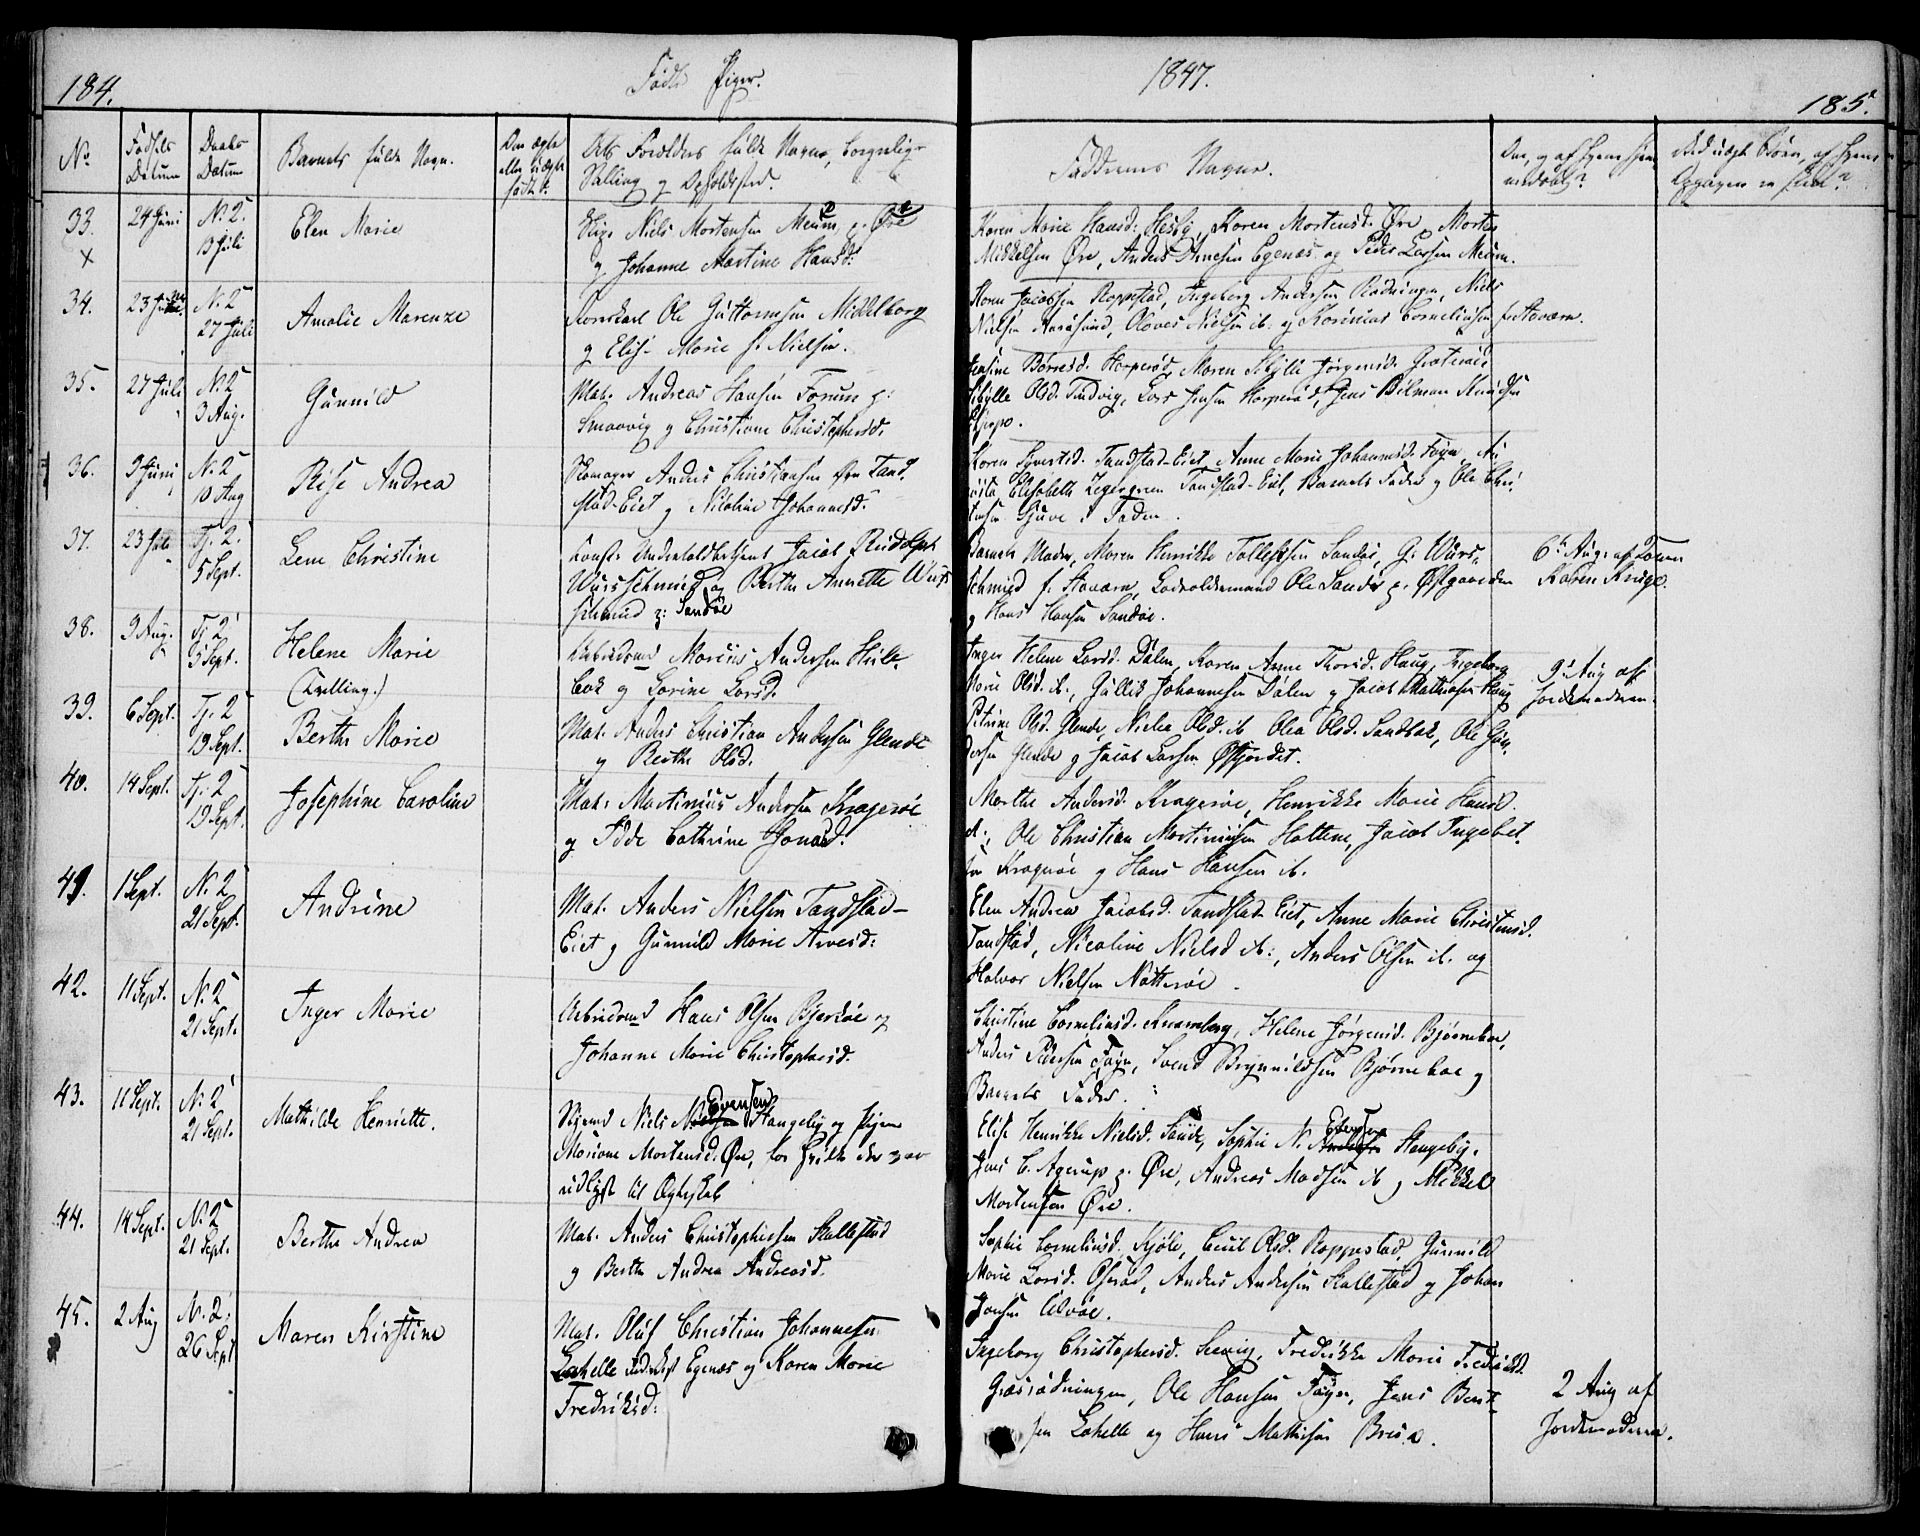 184.
Fødte Piger.
1847.
185.
No
Fødsels Datum
Daabs Datum
Barnets fulde Navn.
Om ægte eller uægte født.
Dets Forældres fulde Navne, borgerlige
Stilling og Opholdsted.
Faddernes Navne.
Om, og af hvem hjemmedøbt?
33.
24 Juni
N. 2.
13 Juli
Elen Marie
Niels Mortensen
og Johanne Martine Hansd:
Karen Marie Hansd: Hesby, Karen Mortensd: Øre, Morten
Mikkelsen Øre, Anders Arnesen Egenæs og Peder Larsen Meum.
34.
N. 2
27 Juli
Amalie Marenze
Ole Guttormsen Middelborg
og Elise Marie f. Nielsen.
Jacobsen Roppestad, Ingeborg Andersen Rødningen, Niels
Nielsen Aarøsund, Olaves Nielsen ib. og Corneliussen fr Staværn.
35.
27 Juli
N. 2
3 Aug.
Gunnild
Mat. Andreas Hansen Forum p:
Smaavig og Christiane Christophersd.
Børresd. Harperød, Maren Sibylle Jørgensd.
Sibylle Olsd. Lars Jensen Harperød, Jens Bilman Knudsen
36.
9 Juni
N. 2
10 Aug
Rise Andrea
Skomager Anders Christensen Øre Tand-
stad-Eiet og Nicoline Johannesd.
Karen Syvertsd. Tandstad-Eiet, Anne Marie Johannesd. Føyn,
Elisabeth Tandstad-Eiet, Barnets Fader og Ole Chri-
37.
23 Juli
Tj. 2.
5 Sept.
Lene Christine
Const. Underholdbetjent Jacob Rudolph
Wursschmied og Berthe Annette Wurs-
schmied p: Sandøe
Barnets Moder, Maren Henrikke Tollefsen Sandøe, G. Wurs-
schmied f. Staværn, Ladvoldermand Ole Sandøe p. Østgaarden
og Hans Hansen Sandøe.
6te Aug. af
Karen Kruge.
38.
9 Aug.
Tj. 2
5 Sept.
Helene Marie
(Tvilling.)
Arbeidsmd Marius Andersen Hule-
bak og Lorine Larsd.
Inger Helene Larsd. Dalen, Karen Anne Thorsd. Haug, Ingeborg
Marie Olsd. ib., Gullik Johannesen Dalen og Jacob Mathiasen Haug
9d Aug af
Jordemoderen.
39.
6 Sept.
Tj. 2
19 Sept.
Berthe Marie
Mat. Anders Christian Andersen Glende
og Berthe Olsd.
Petrine Olsd. Glende, Nielea Olsd. ib Olea Olsd. Sandbak, Ole Gun-
dersen Glende og Jacob Larsen Østjordet.
40.
14 Sept.
Tj. 2
19 Sept.
Josephine Caroline
Mat. Martinius Andersen Kragerøe
og Edde Cathrine Jonasd.
Marthe Andersd. Kragerøe, Henrikke Marie Hansd.
ib., Ole Christian Martiniusen Hattene, Jacob Ingebret-
sen Kragerøe og Hans Hansen ib.
41.
1 Sept.
N. 2
21 Sept.
Andrine
Mat. Anders Nielsen Tandstad-
Eiet og Gunnild Marie Arvesd:
Elen Andrea Jacobsd. Tandstad-Eiet, Anne Marie Christensd.
Tandstad, Nicoline Nielsd ib:, Anders Olsen ib. og
Halvor Nielsen Nøtterøe.
42.
11 Sept.
N. 2
21 Sept.
Inger Marie
Arbeidsmd Hans Olsen Bjerkøe og
Johanne Marie Christophersd.
Christine Corneliusd. Knarreberg, Helene Jørgensd. Bjørneboe,
Anders Pedersen Føyn, Svend Brynnildsen Bjørneboe og
Barnets Fader.
43.
11 Sept.
N. 2
21 Sept.
Mathilde Henriette.
Niels Evensen Stangeby og Pigen
Mariane Mortensd. Øre, for hvilke der er
udlyst til Ægteskab
Elise Henrikke Nielsd. Sande, Sophie N. Stangeby,
Jens C. Agerup p. Øre, Andreas Madsen ib og Mikkel
Mortensen Øre.
44.
14 Sept.
N. 2
21 Sept.
Berthe Andrea
Mat. Anders Christophersen Skallestad
og Berthe Andrea Andreasd.
Sophie Corneliusd. Kjøle, Olsd. Roppestad, Gunnild
Marie Larsd. Oserød, Anders Andersen Skallestad og Johan
Jansen
45.
2 Aug
N. 2.
26 Sept
Maren Kirstine
Mat. Oluf Christian Johannesen
Lahelle Egenæs og Karen Marie
Fredriksd:
Ingeborg Christophersd. Fredrikke Marie Fredriksd.
Græsrødningen, Ole Hansen Føyn, Jens Bent-
sen Lahelle og Hans Mathisen
2 Aug af
Jordemoderen.